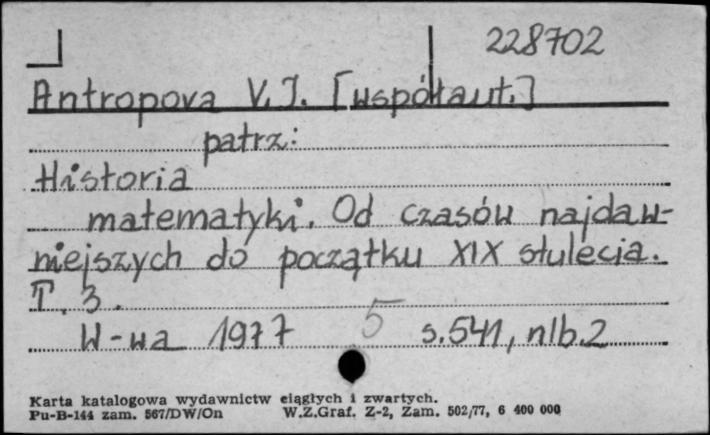 228702
Antropova V.I. [współaut.]
patrz:
Historia
matematyki. Od czasów najdaw-
niejszych do początku XIX stulecia.
T. 3.
W-wa 1977 5 s.541, nlb.2
Karta katalogowa wydawnictw ciągłych i zwartych.
Pu-B-144 zam. 567/DW/On W.Z.Graf. Z-2, Zam. 502/77, 6 400 000